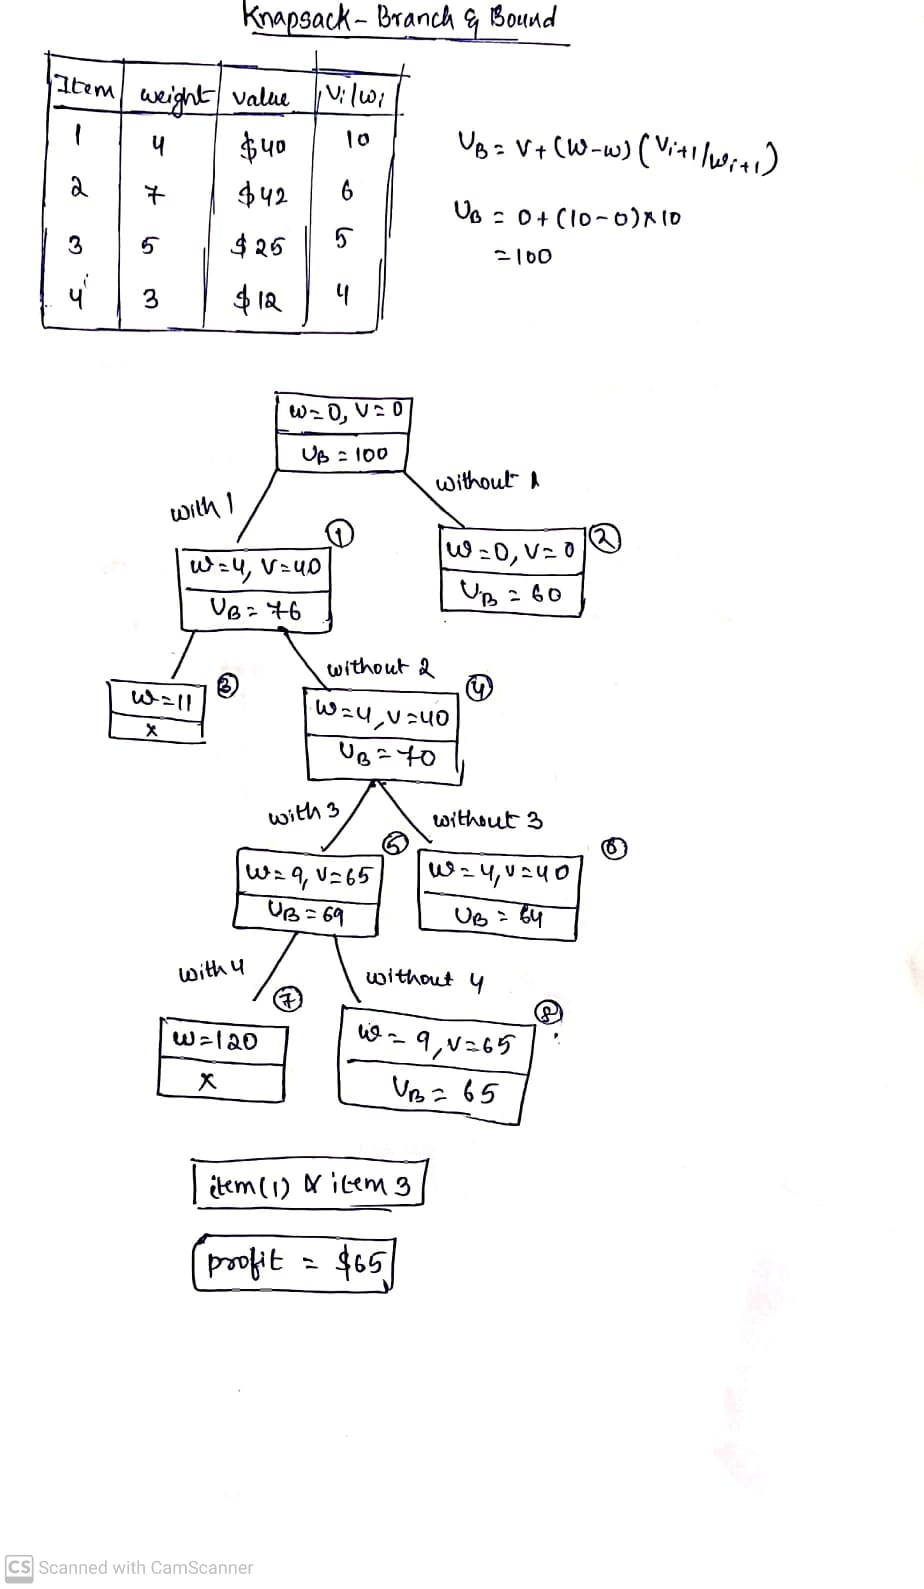 Knapsack - Branch & Bound
Item weight value Vi/wi
1 4 $40 10
2 7 $42 6
3 5 $25 5
4 3 $12 4
UB = V + (W-w) (Vi+1/wi+1)
UB = 0 + (10-0) x 10
= 100
w=0, V=0
UB = 100
with 1
without 1
1
w=4, V=40
UB = 76
2
w=0, V=0
UB = 60
without 2
3
w=11
x
4
w=4, V=40
UB = 70
with 3
without 3
5
w=9, V=65
UB = 69
6
w=4, V=40
UB = 64
with 4
without 4
7
w=120
x
8
w=9, V=65
UB = 65
item(1) & item 3
profit = $65
CS Scanned with CamScanner